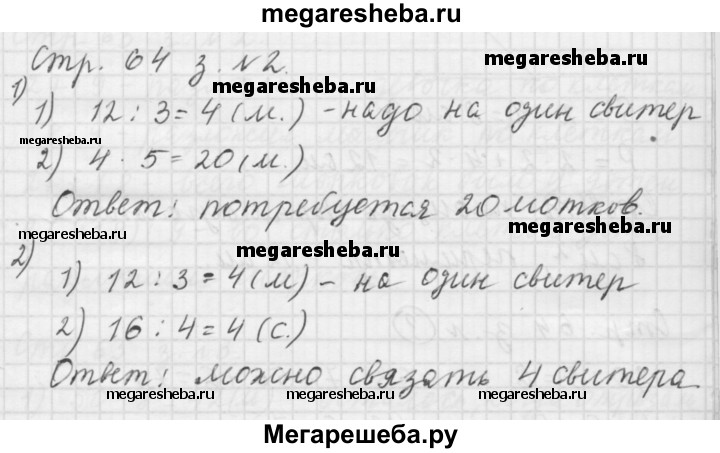 megaresheba.ru
Стр. 64 з. №2.
megaresheba.ru megaresheba.ru
1)
1) 12 : 3 = 4 (м.) - надо на один свитер
megaresheba.ru
2) 4 · 5 = 20 (м.)
Ответ: потребуется 20 мотков.
megaresheba.ru megaresheba.ru megaresheba.ru
2)
1) 12 : 3 = 4 (м) - на один свитер
2) 16 : 4 = 4 (с.)
Ответ: можно связать 4 свитера
megaresheba.ru megaresheba.ru megaresheba.ru
Мегарешеба.ру